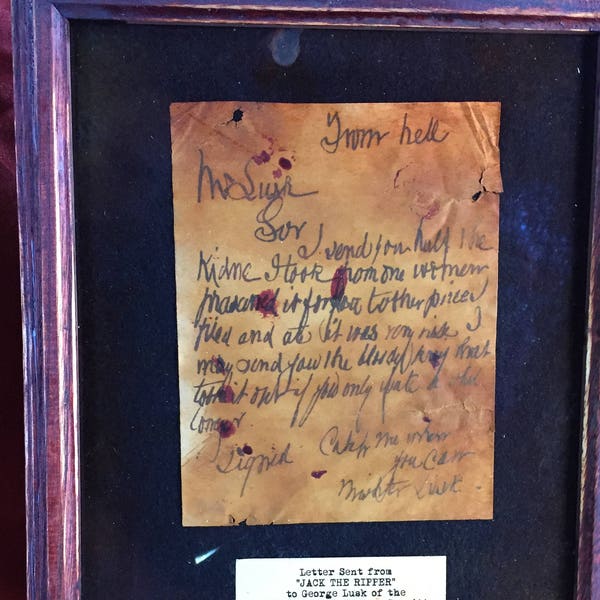 From hell
Mr Lusk
Sor
I send you half the
Kidne I took from one women
prasarved it for you tother piece I
fried and ate it was very nise I
may send you the bloody knif that
took it out if you only wate a whil
longer
Signed Catch me when
you can
Mishter Lusk
Letter Sent from
"JACK THE RIPPER"
to George Lusk of the